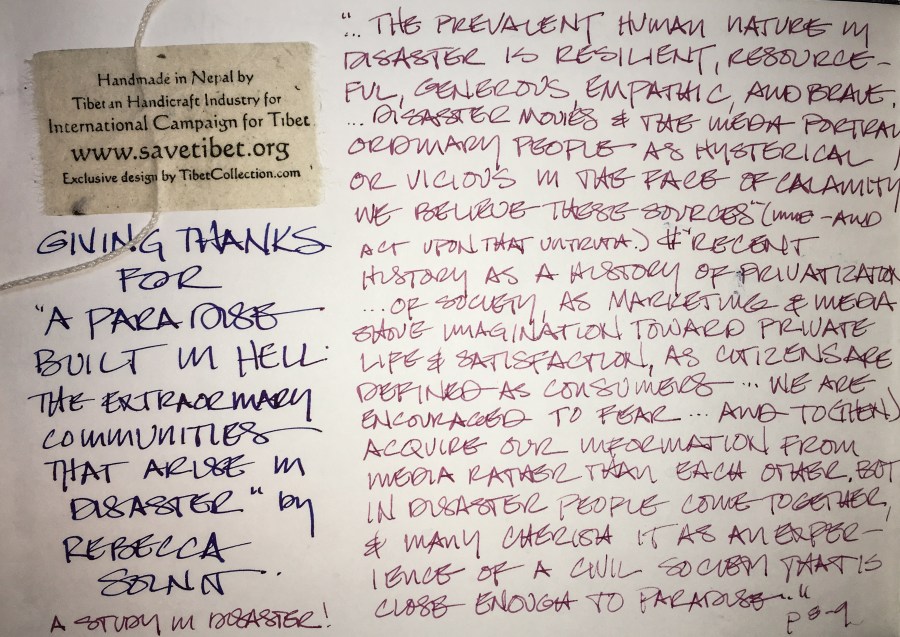 Handmade in Nepal by
Tibetan Handicraft Industry for
International Campaign for Tibet
www.savetibet.org
Exclusive design by TibetCollection.com
GIVING THANKS
FOR
"A PARADISE
BUILT IN HELL:
THE EXTRAORDINARY
COMMUNITIES
THAT ARISE IN
DISASTER" by
REBECCA
SOLNIT.
A STUDY IN DISASTER!
"... THE PREVALENT HUMAN NATURE IN
DISASTER IS RESILIENT, RESOURCE-
FUL, GENEROUS, EMPATHIC, AND BRAVE.
... DISASTER MOVIES & THE MEDIA PORTRAY
ORDINARY PEOPLE AS HYSTERICAL
OR VICIOUS IN THE FACE OF CALAMITY
WE BELIEVE THESE SOURCES" (mme - AND
ACT UPON THAT UNTRUTH.) # "RECENT
HISTORY AS A HISTORY OF PRIVATIZATION
... OF SOCIETY, AS MARKETING & MEDIA
SHOVE IMAGINATION TOWARD PRIVATE
LIFE & SATISFACTION, AS CITIZENS ARE
DEFINED AS CONSUMERS ... WE ARE
ENCOURAGED TO FEAR ... AND TO (THEN)
ACQUIRE OUR INFORMATION FROM
MEDIA RATHER THAN EACH OTHER. BUT
IN DISASTER PEOPLE COME TOGETHER,
& MANY CHERISH IT AS AN EXPER-
IENCE OF A CIVIL SOCIETY THAT IS
CLOSE ENOUGH TO PARADISE..."
p 8-9